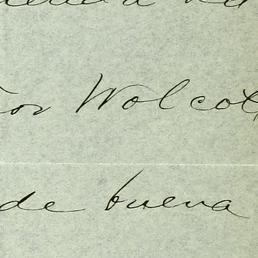 or Wolcott
de buena